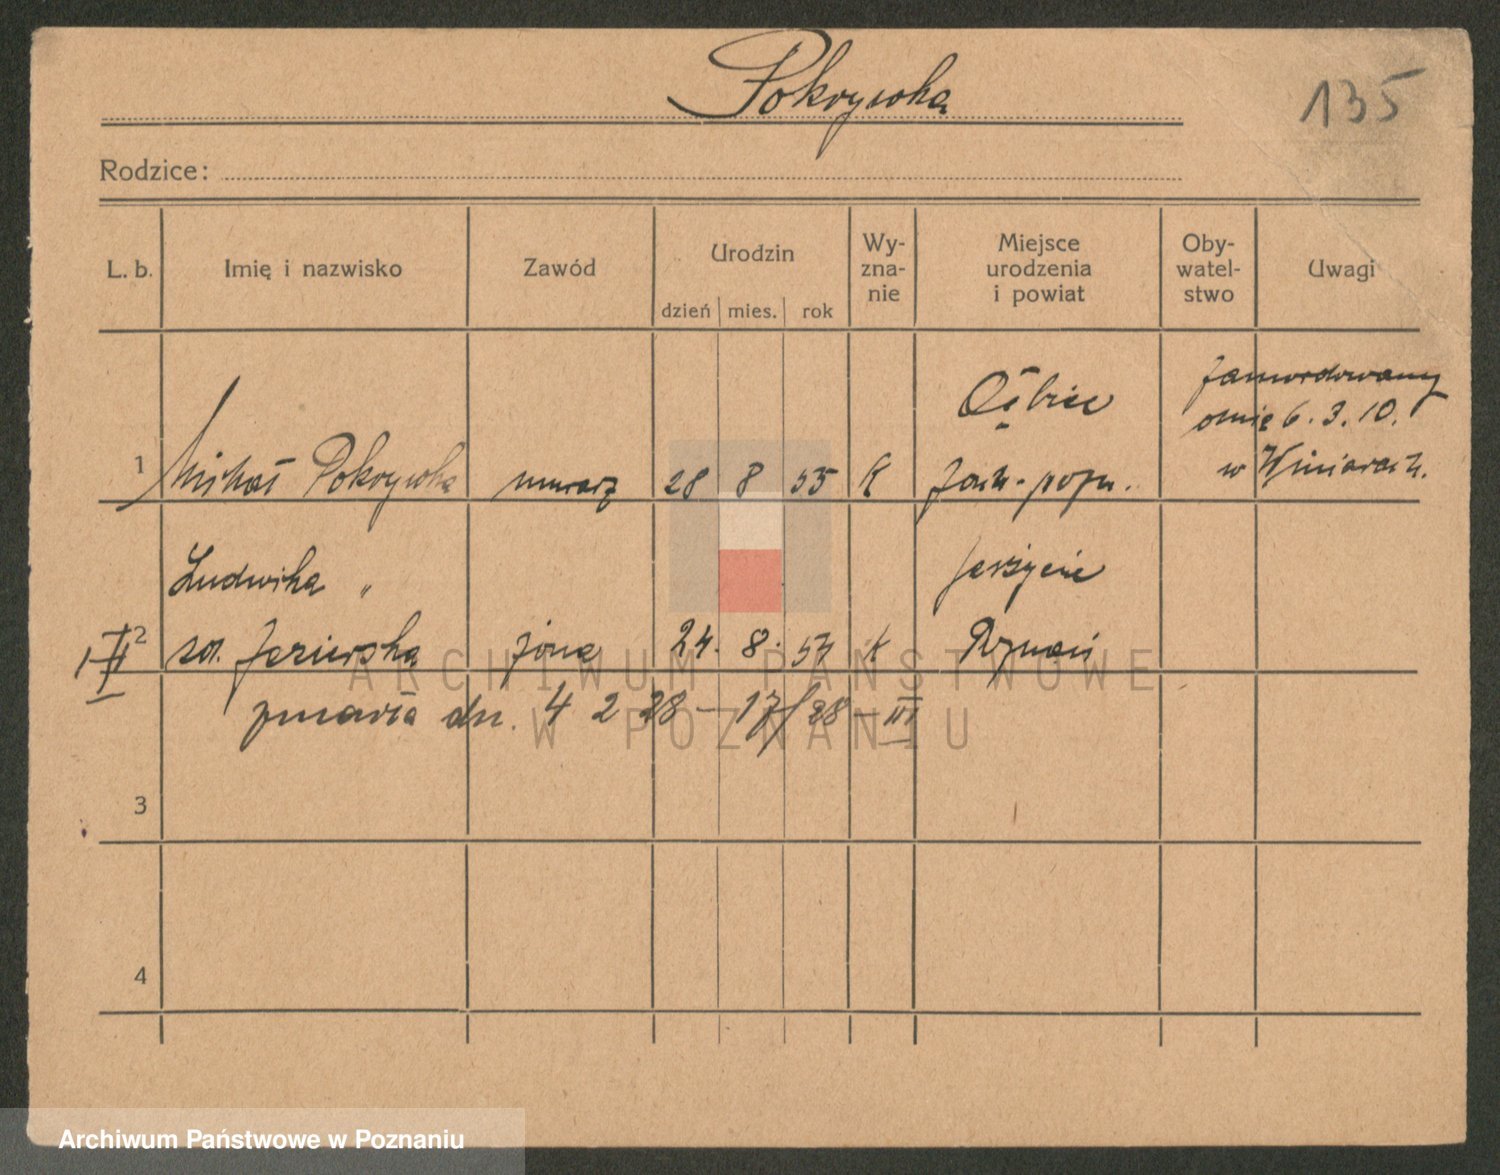 Pokrywka
135
Rodzice:
L. b.
Imię i nazwisko
Zawód
Urodzin
dzień mies. rok
Wy-
zna-
nie
Miejsce
urodzenia
i powiat
Oby-
watel-
stwo
Uwagi
zamordowany
dnia 6. 3. 10.
w Winiarach.
1 Michał Pokrywka murarz 28 8 55 K
Ludwika "
Jerzyce
I II 2 Jezierska żona 24. 8. 57 K Poznań
zmarła dn. 4 2 28 – 17/28 – VI
3
4
ARCHIWUM PAŃSTWOWE
W POZNANIU
Archiwum Państwowe w Poznaniu